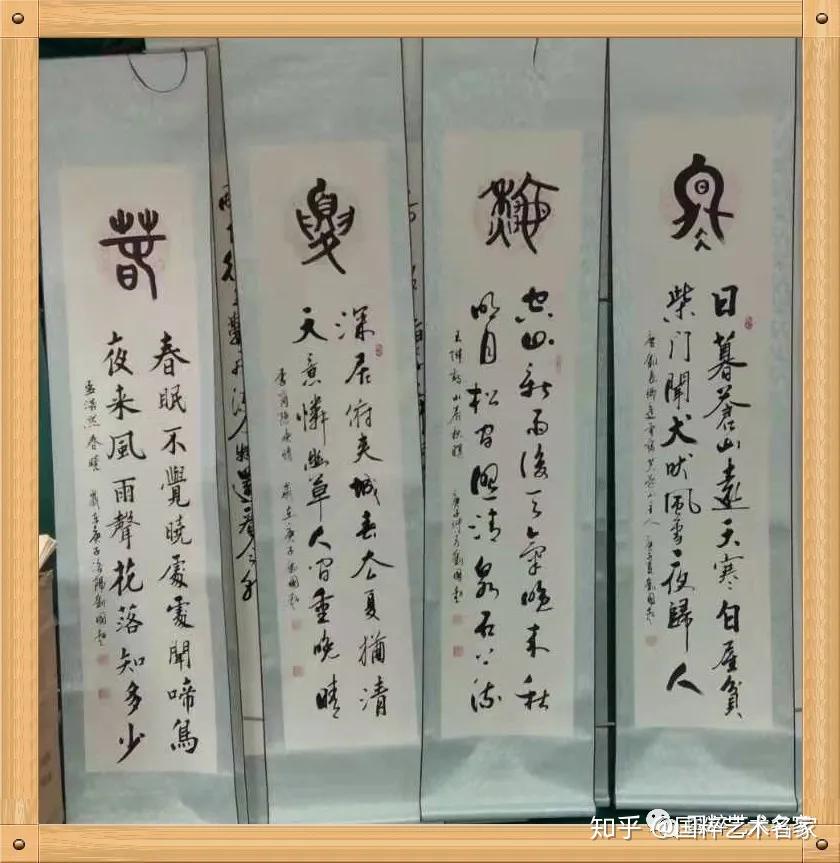 春
春眠不覺曉處處聞啼鳥
夜来風雨聲花落知多少
孟浩然春曉 歲在庚子洛陽劉國
夏
深居俯夹城春去夏猶清
天意憐幽草人间重晚晴
李商隐晚晴 歲在庚子劉國
秋
空山新雨後天氣晚来秋
明月松间照清泉石上流
王維詩山居秋暝 庚子劉國
冬
日暮苍山遠天寒白屋貧
柴门聞犬吠風雪夜歸人
唐劉長卿逢雪宿芙蓉山主人 庚子夏劉國
知乎 @国粹艺术名家